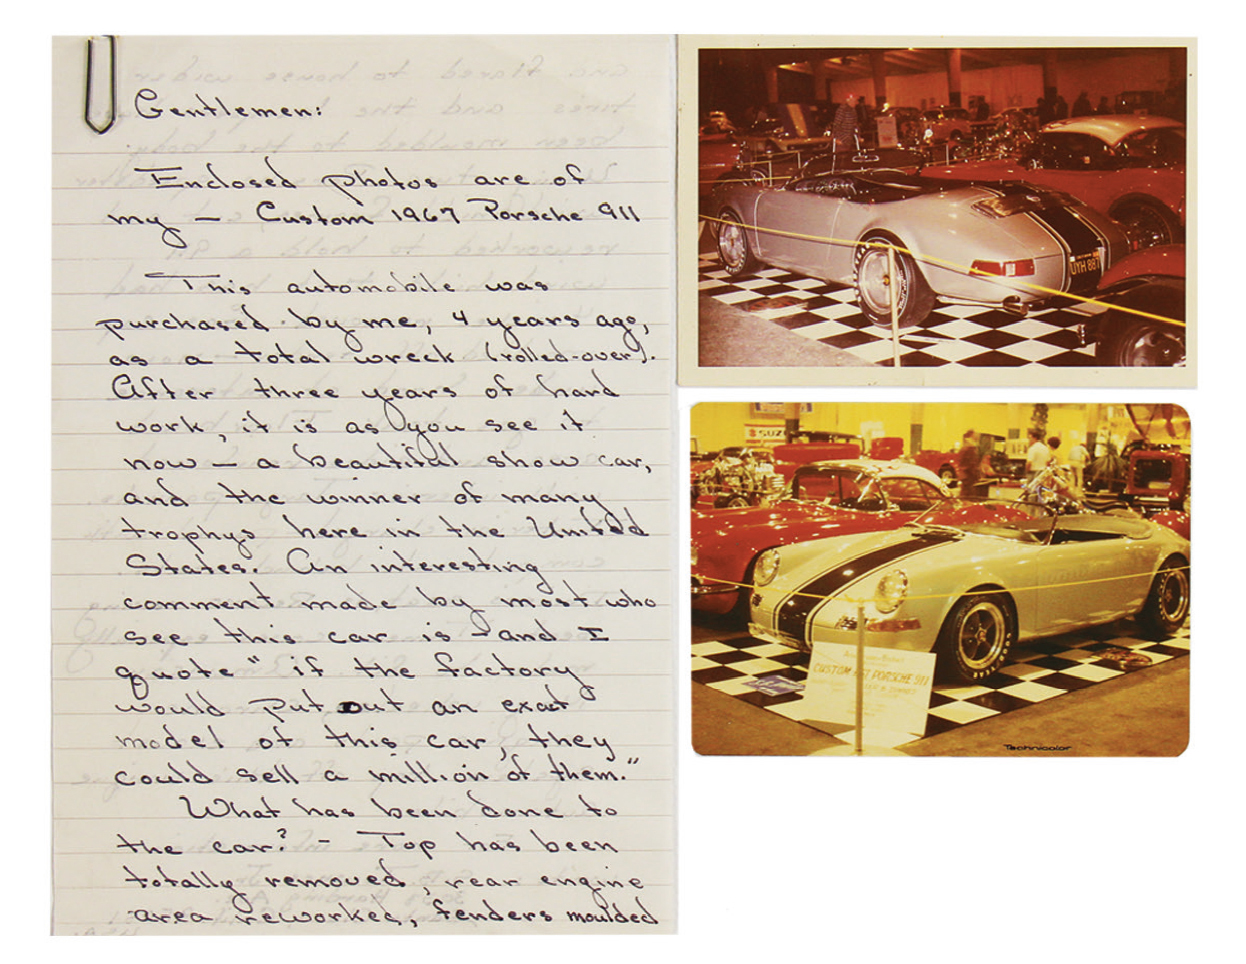 Gentlemen:
Enclosed photos are of
my — Custom 1967 Porsche 911
This automobile was
purchased by me, 4 years ago,
as a total wreck (rolled-over).
After three years of hard
work, it is as you see it
now — a beautiful show car,
and the winner of many
trophys here in the United
States. An interesting
comment made by most who
see this car is - and I
quote "if the factory
would put out an exact
model of this car, they
could sell a million of them."
What has been done to
the car? - Top has been
totally removed, rear engine
area reworked, fenders moulded
UYH 887
SUZU
CUSTOM GT PORSCHE 911
Technicolor